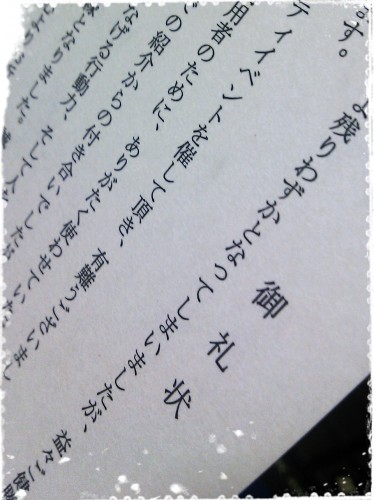 御礼状
よ残りわずかとなってしまいましたが、益々ご
ます。
ティイベントを催して頂き、有難うございまし
用者のために、ありがたく使わせていた
の紹介からの付き合いでした
なげる行動力、そして人
となりました。